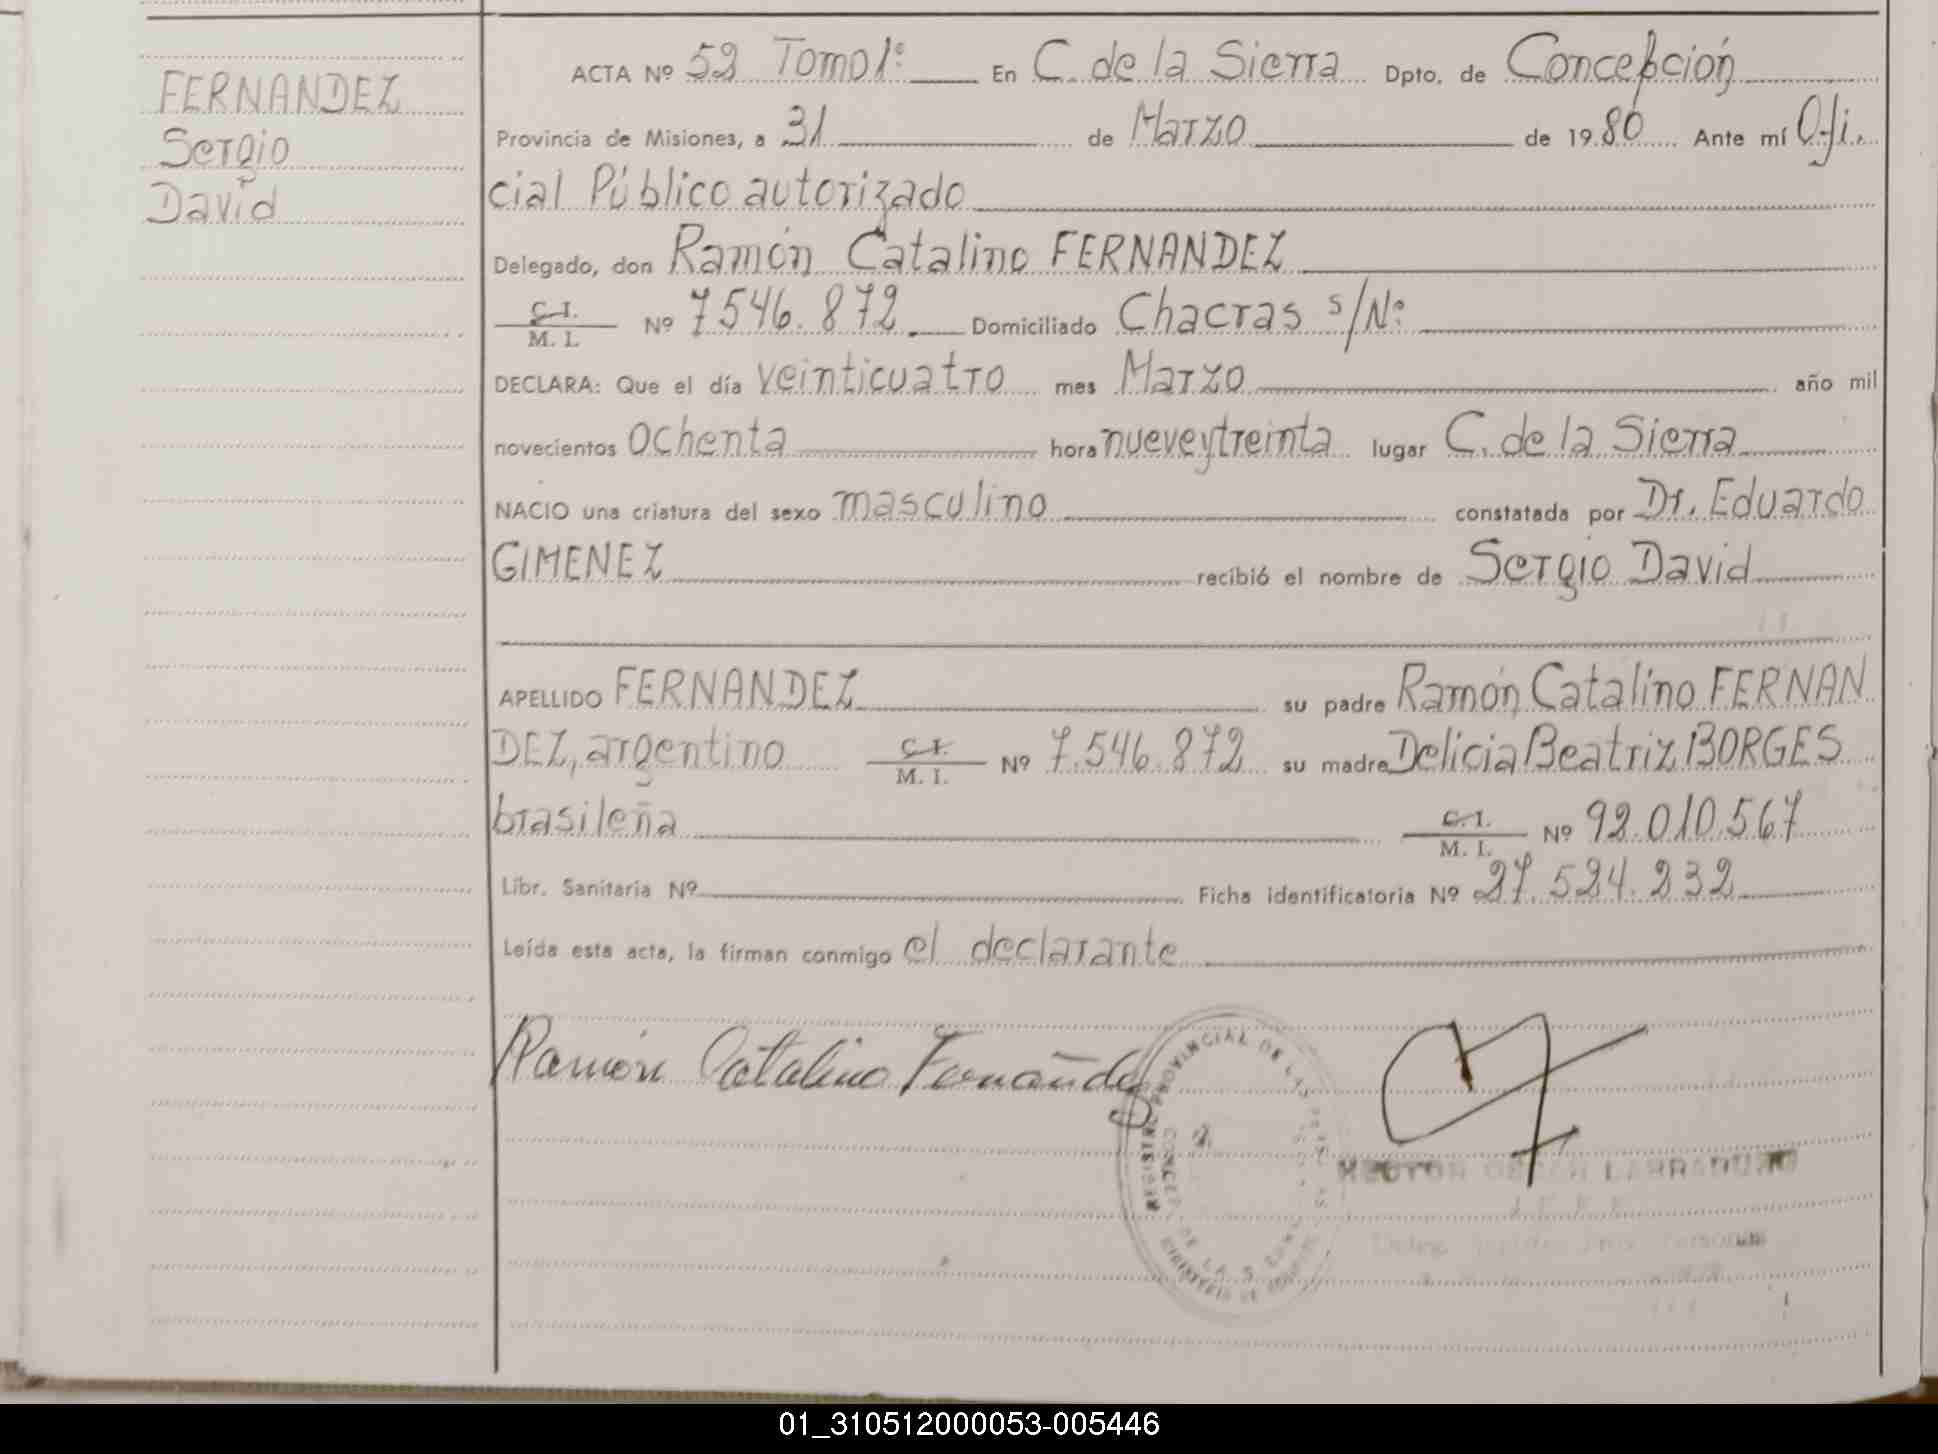 FERNANDEZ
Sergio
David
ACTA Nº 52 Tomo 1º En C. de la Sierra Dpto. de Concepción
Provincia de Misiones, a 31 de Marzo de 1980 Ante mí Ofi.
cial Público autorizado
Delegado, don Ramón Catalino FERNANDEZ
C. I.
M. I. Nº 7546.872 Domiciliado Chacras s/Nº
DECLARA: Que el día veinticuatro mes Marzo año mil
novecientos ochenta hora nueve y treinta lugar C. de la Sierra
NACIO una criatura del sexo masculino constatada por Dr. Eduardo
GIMENEZ recibió el nombre de Sergio David
APELLIDO FERNANDEZ su padre Ramón Catalino FERNAN
DEZ, argentino C. I. M. I. Nº 7.546.872 su madre Delicia Beatriz BORGES
brasileña C. I. M. I. Nº 92.010.567
Libr. Sanitaria Nº Ficha identificatoria Nº 27.524.232
Leída esta acta, la firman conmigo el declarante
Ramón Catalino Fernández
PROVINCIAL DE
DE LA S
HECTOR OSCAR LABRADORO
JEFE
01_310512000053-005446